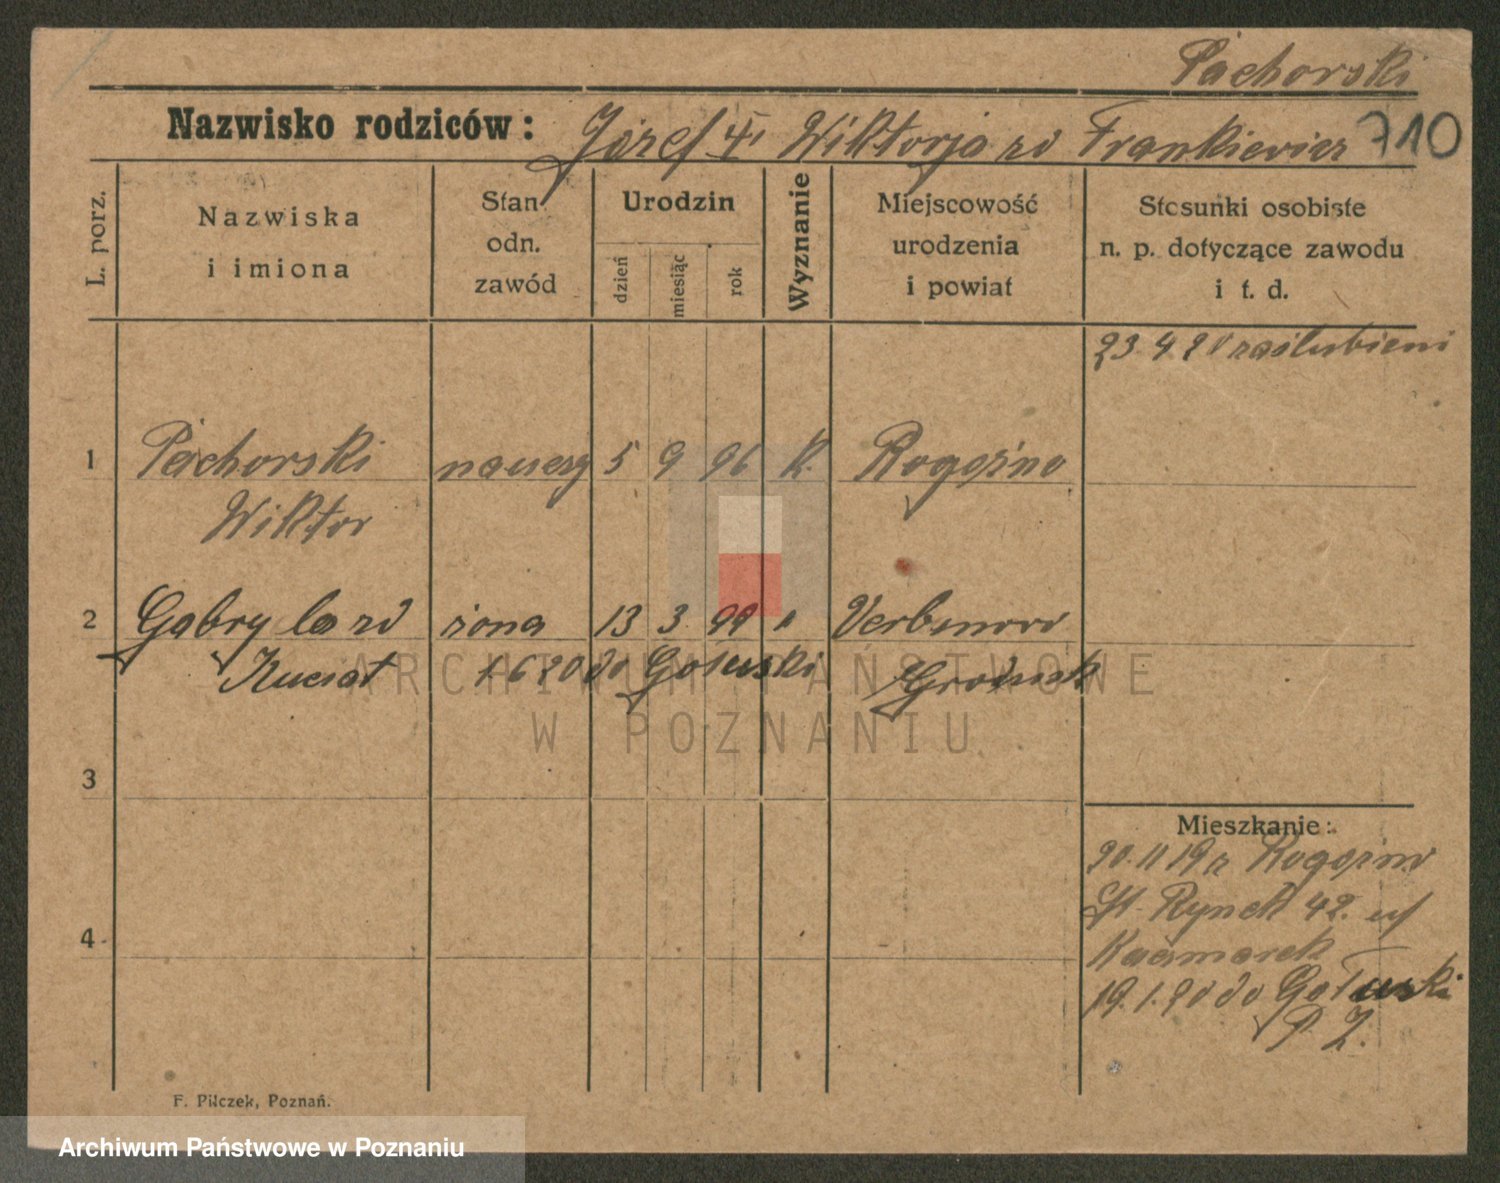 Pachorski
Nazwisko rodziców: Józef Wiktorja zd Frankiewicz 710
L. porz.
Nazwiska
i imiona
Stan
odn.
zawód
Urodzin
dzień
miesiąc
rok
Wyznanie
Miejscowość
urodzenia
i powiat
Stosunki osobiste
n. p. dotyczące zawodu
i t. d.
23.4.20 zaślubieni
1 Pachorski 5 9 96 k. Rogoźno
Wiktor
2 Gabryela zd żona 13 3 99 "
1.6 20 do Gołuski
3
Mieszkanie:
20.11 19 r Rogoźno
Rynek 42.
Kaczmarek
4
19.1.20 do Gołuski
P Z.
F. Pilczek, Poznań.
ARCHIWUM PAŃSTWOWE
W POZNANIU
Archiwum Państwowe w Poznaniu